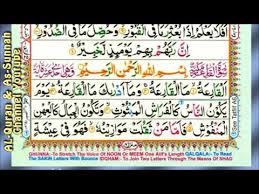 اَفَلَا يَعْلَمُ اِذَا بُعْثِرَ مَا فِى الْقُبُوْرِ وَحُصِّلَ مَا فِى الصُّدُوْرِ
اِنَّ رَبَّهُمْ بِهِمْ يَوْمَئِذٍ لَّخَبِيْرٌ
بِسْمِ اللهِ الرَّحْمٰنِ الرَّحِيْمِ
اَلْقَارِعَةُ مَا الْقَارِعَةُ وَمَا اَدْرٰىكَ مَا الْقَارِعَةُ يَوْمَ
يَكُوْنُ النَّاسُ كَالْفَرَاشِ الْمَبْثُوْثِ وَتَكُوْنُ الْجِبَالُ
كَالْعِهْنِ الْمَنْفُوْشِ فَاَمَّا مَنْ ثَقُلَتْ مَوَازِيْنُهٗ
GHUNNA :-To Stretch The Voice OF NOON Or MEEM One Alif's Length QALQALA :- To Read
The SAKIN Letters With Bounce IDGHAM :- To Join Two Letters Through The Means Of SHAD
AL-Quran & As-Sunnah
Channel Youtube